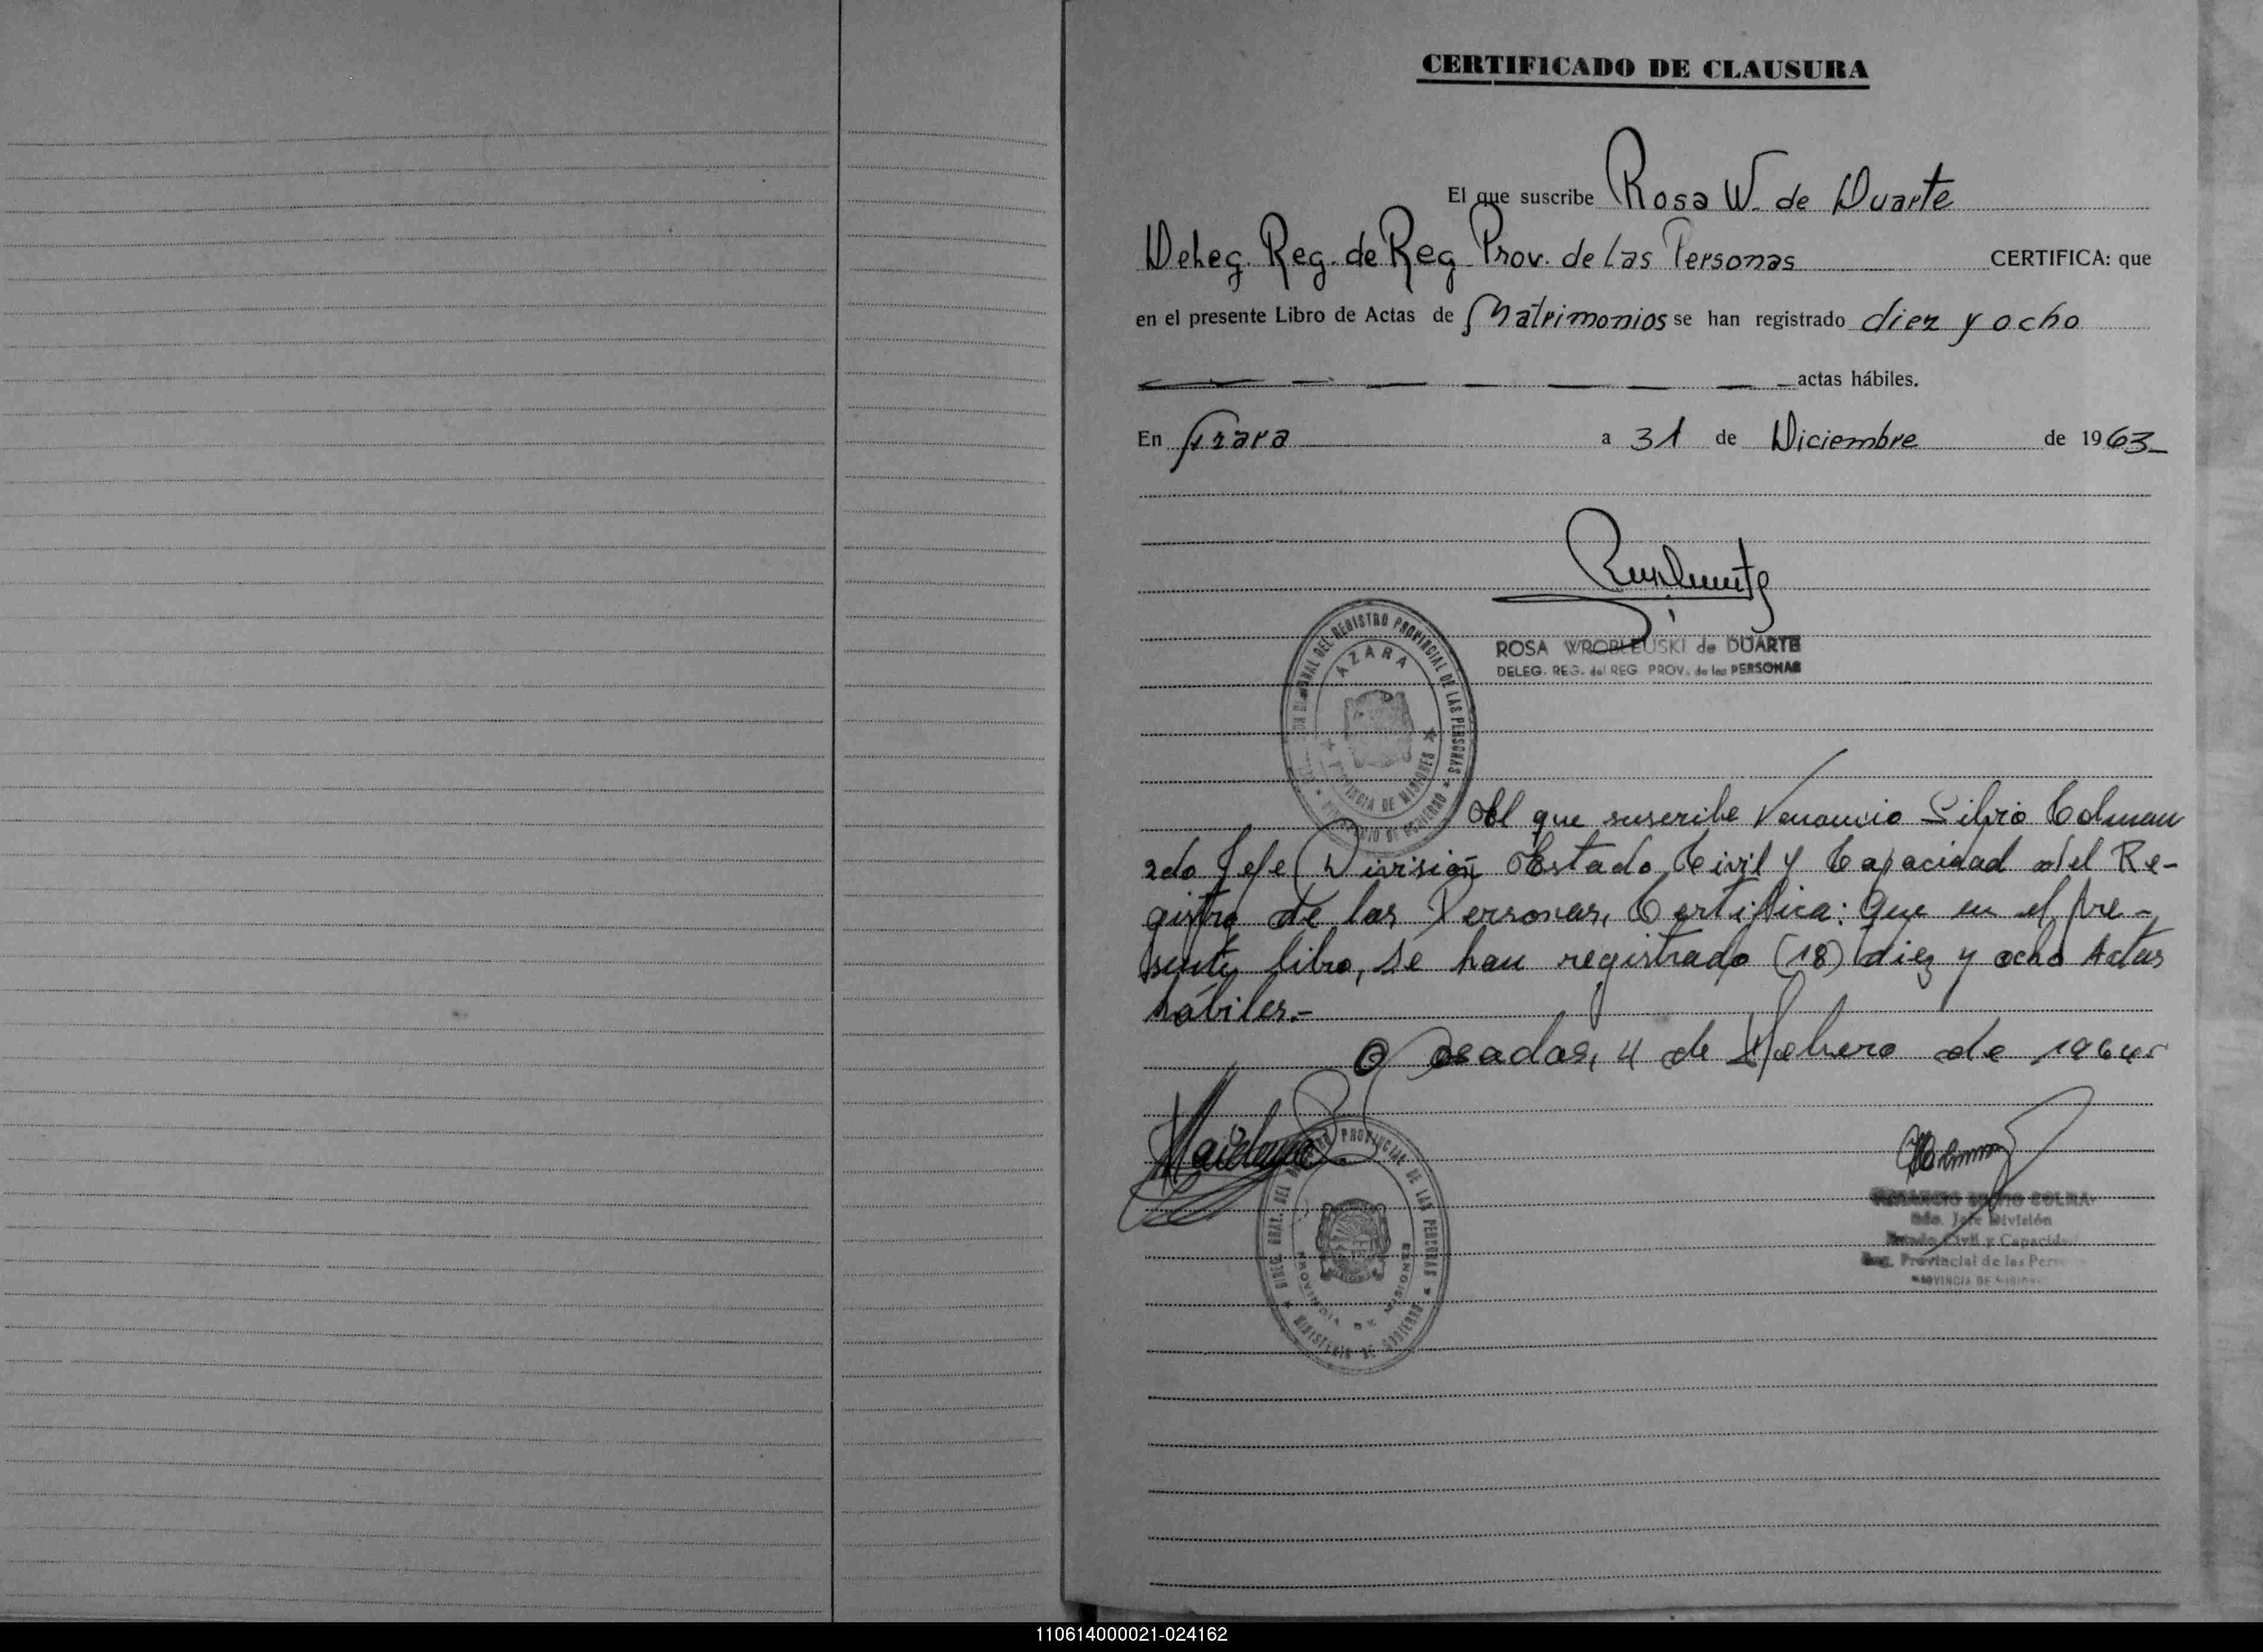 CERTIFICADO DE CLAUSURA
El que suscribe Rosa W. de Duarte
Deleg. Reg. de Reg. Prov. de las Personas CERTIFICA: que
en el presente Libro de Actas de Matrimonios se han registrado diez y ocho
actas hábiles.
En Azara a 31 de Diciembre de 1963
ROSA WROBLEUSKI de DUARTE
DELEG. REG. del REG. PROV. de las PERSONAS
REGIONAL DEL REGISTRO PROVINCIAL DE LAS PERSONAS
AZARA
PROVINCIA DE MISIONES
MINISTERIO DE GOBIERNO
El que suscribe Venancio Silvio Colman
2do Jefe División Estado Civil y Capacidad del Re-
gistro de las Personas, Certifica: Que en el pre-
sente libro, se han registrado (18) diez y ocho Actas
hábiles.-
Posadas, 4 de Febrero de 1964
DIREC. GRAL. DEL REGISTRO PROVINCIAL DE LAS PERSONAS
PROVINCIA DE MISIONES
MINISTERIO DE GOBIERNO
VENANCIO SILVIO COLMAN
2do. Jefe División
Estado Civil y Capacidad
Reg. Provincial de las Personas
PROVINCIA DE MISIONES
110614000021-024162